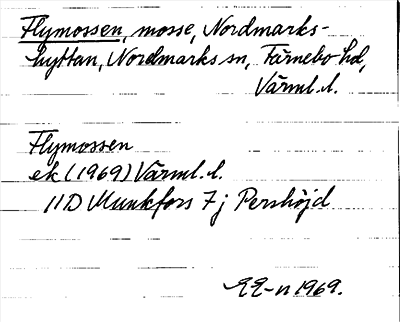 Flymossen, mosse, Nordmarks-
hyttan, Nordmarks sn, Färnebo hd,
Värml. l.
Flymossen
ek (1969) Värml. l.
11D Munkfors 7j Pershöjd
EE-n 1969.